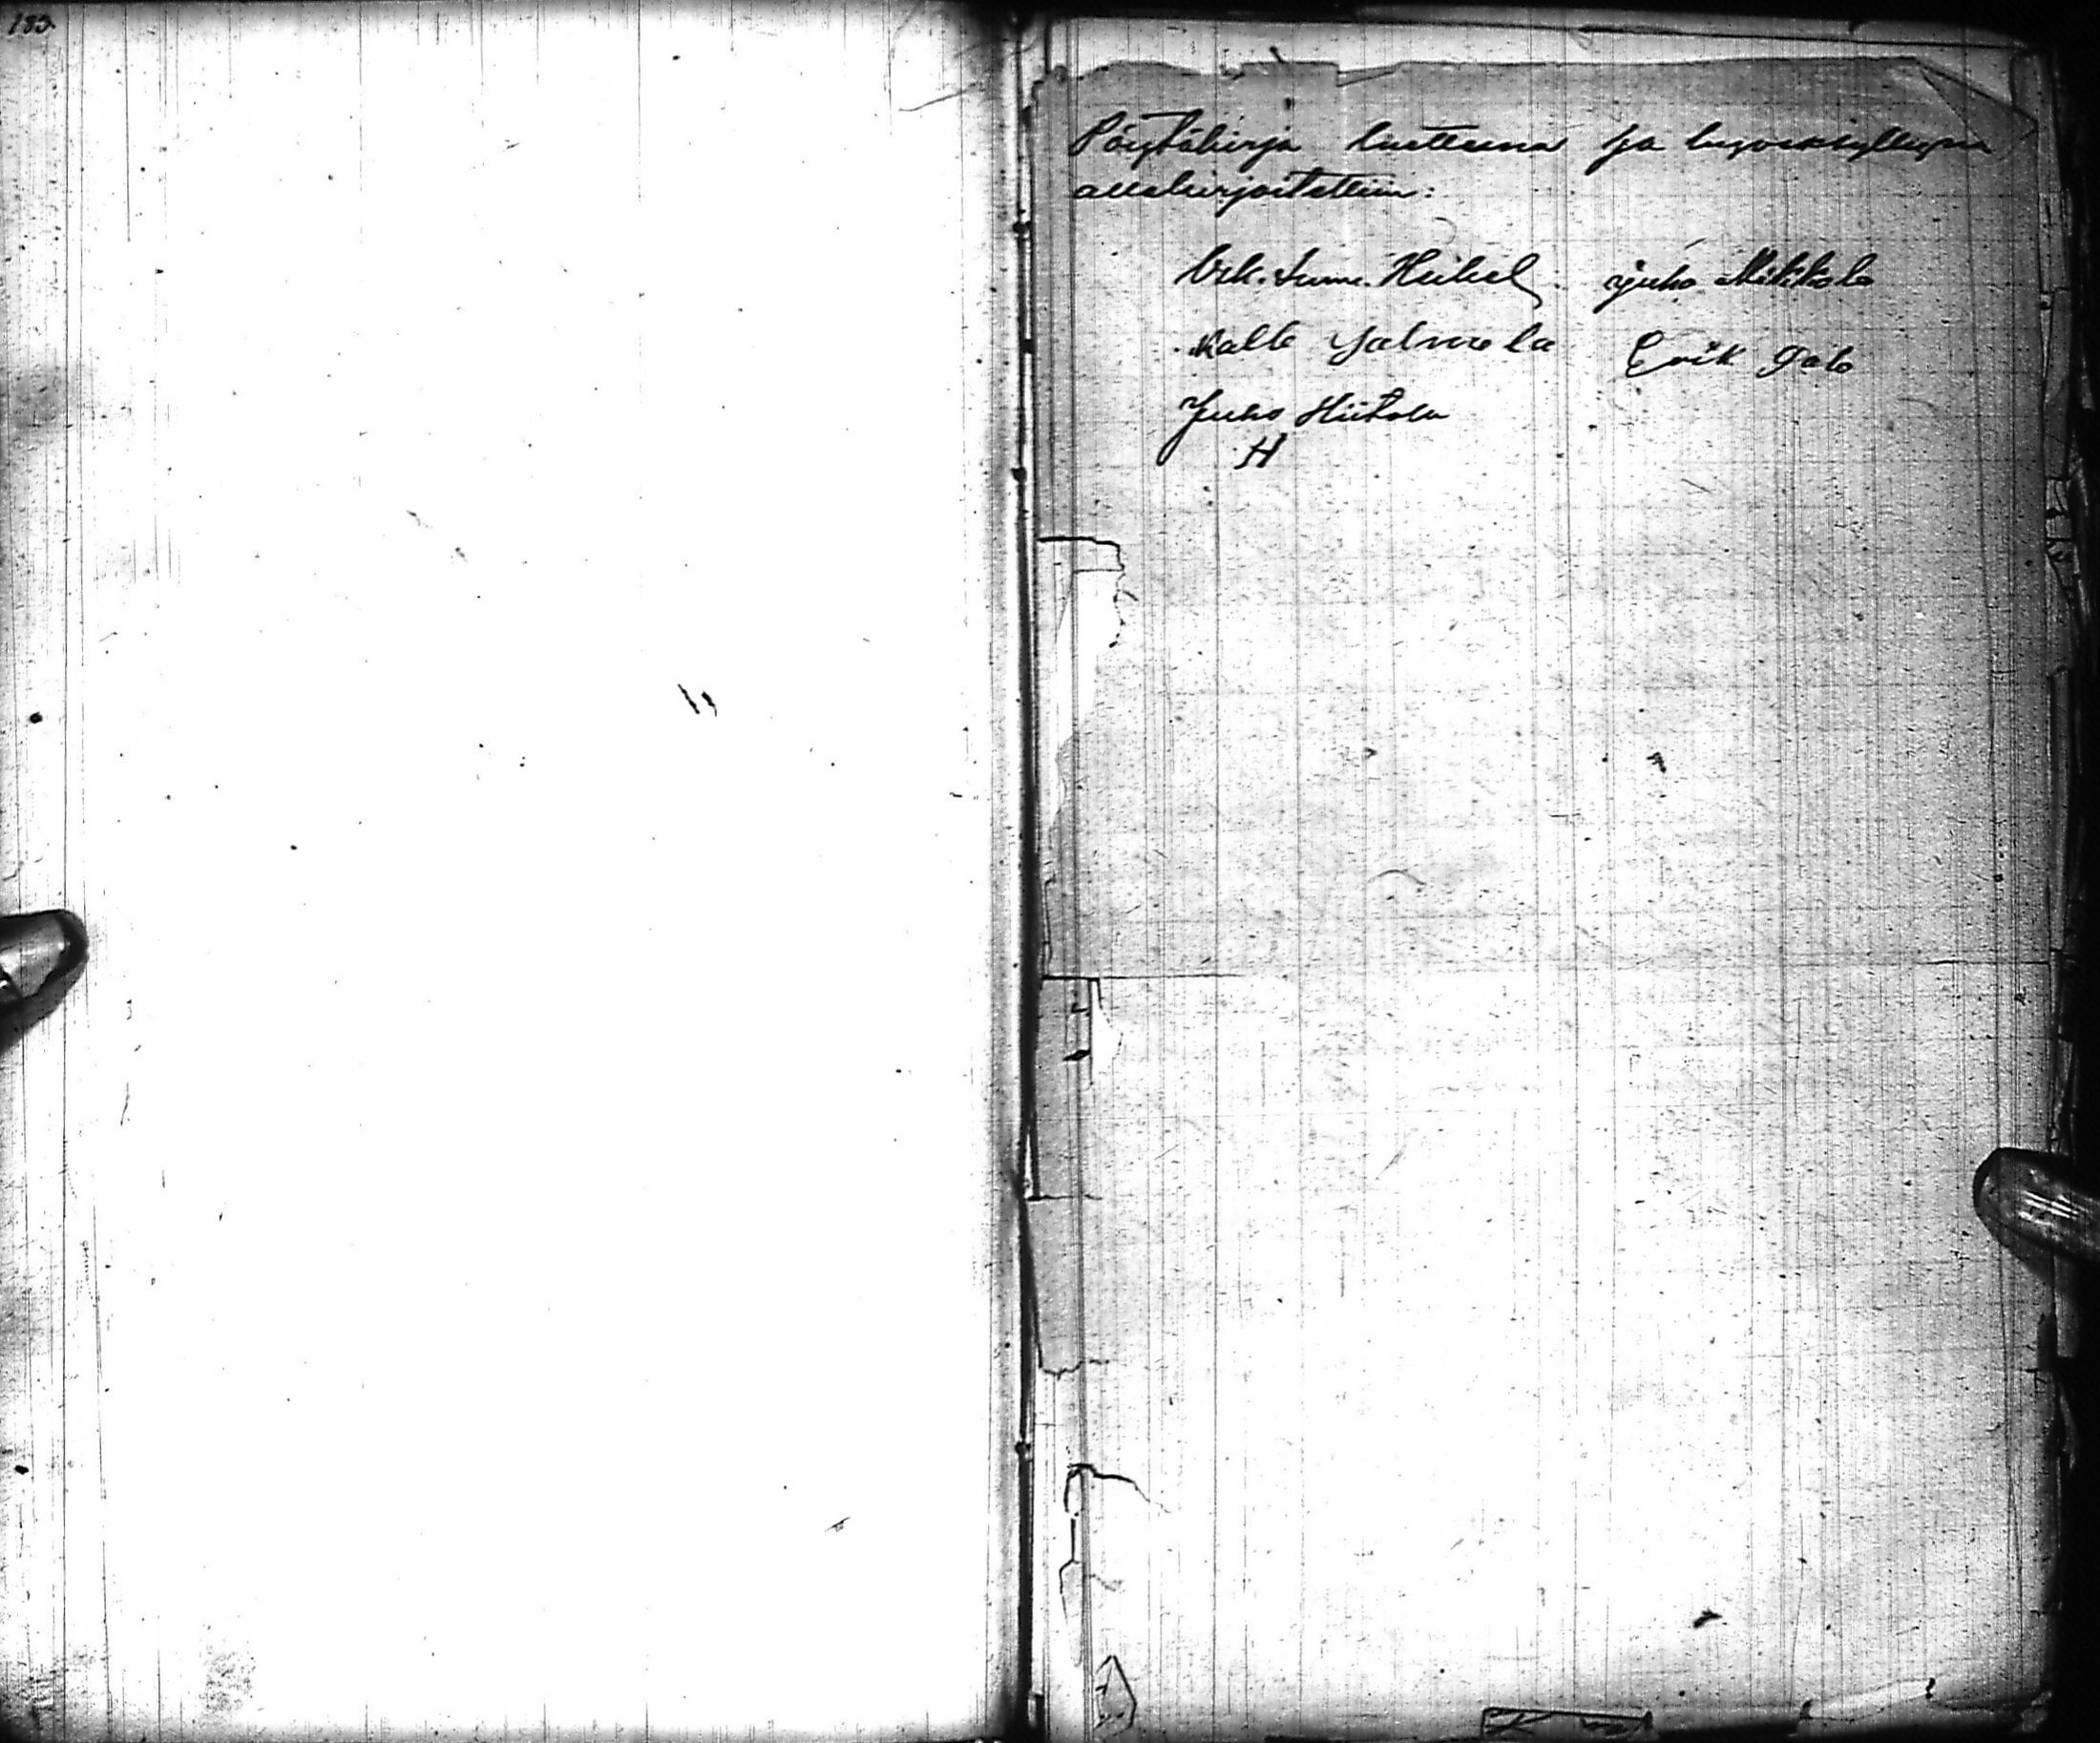 183
Pöytäkirja luettuna ja hyväksyttynä
allekirjoitettiin:
Osk. Imm. Heikel. Juho Mikkola
Kalle Jalmela Erik Talo
Juho Hiitola
H